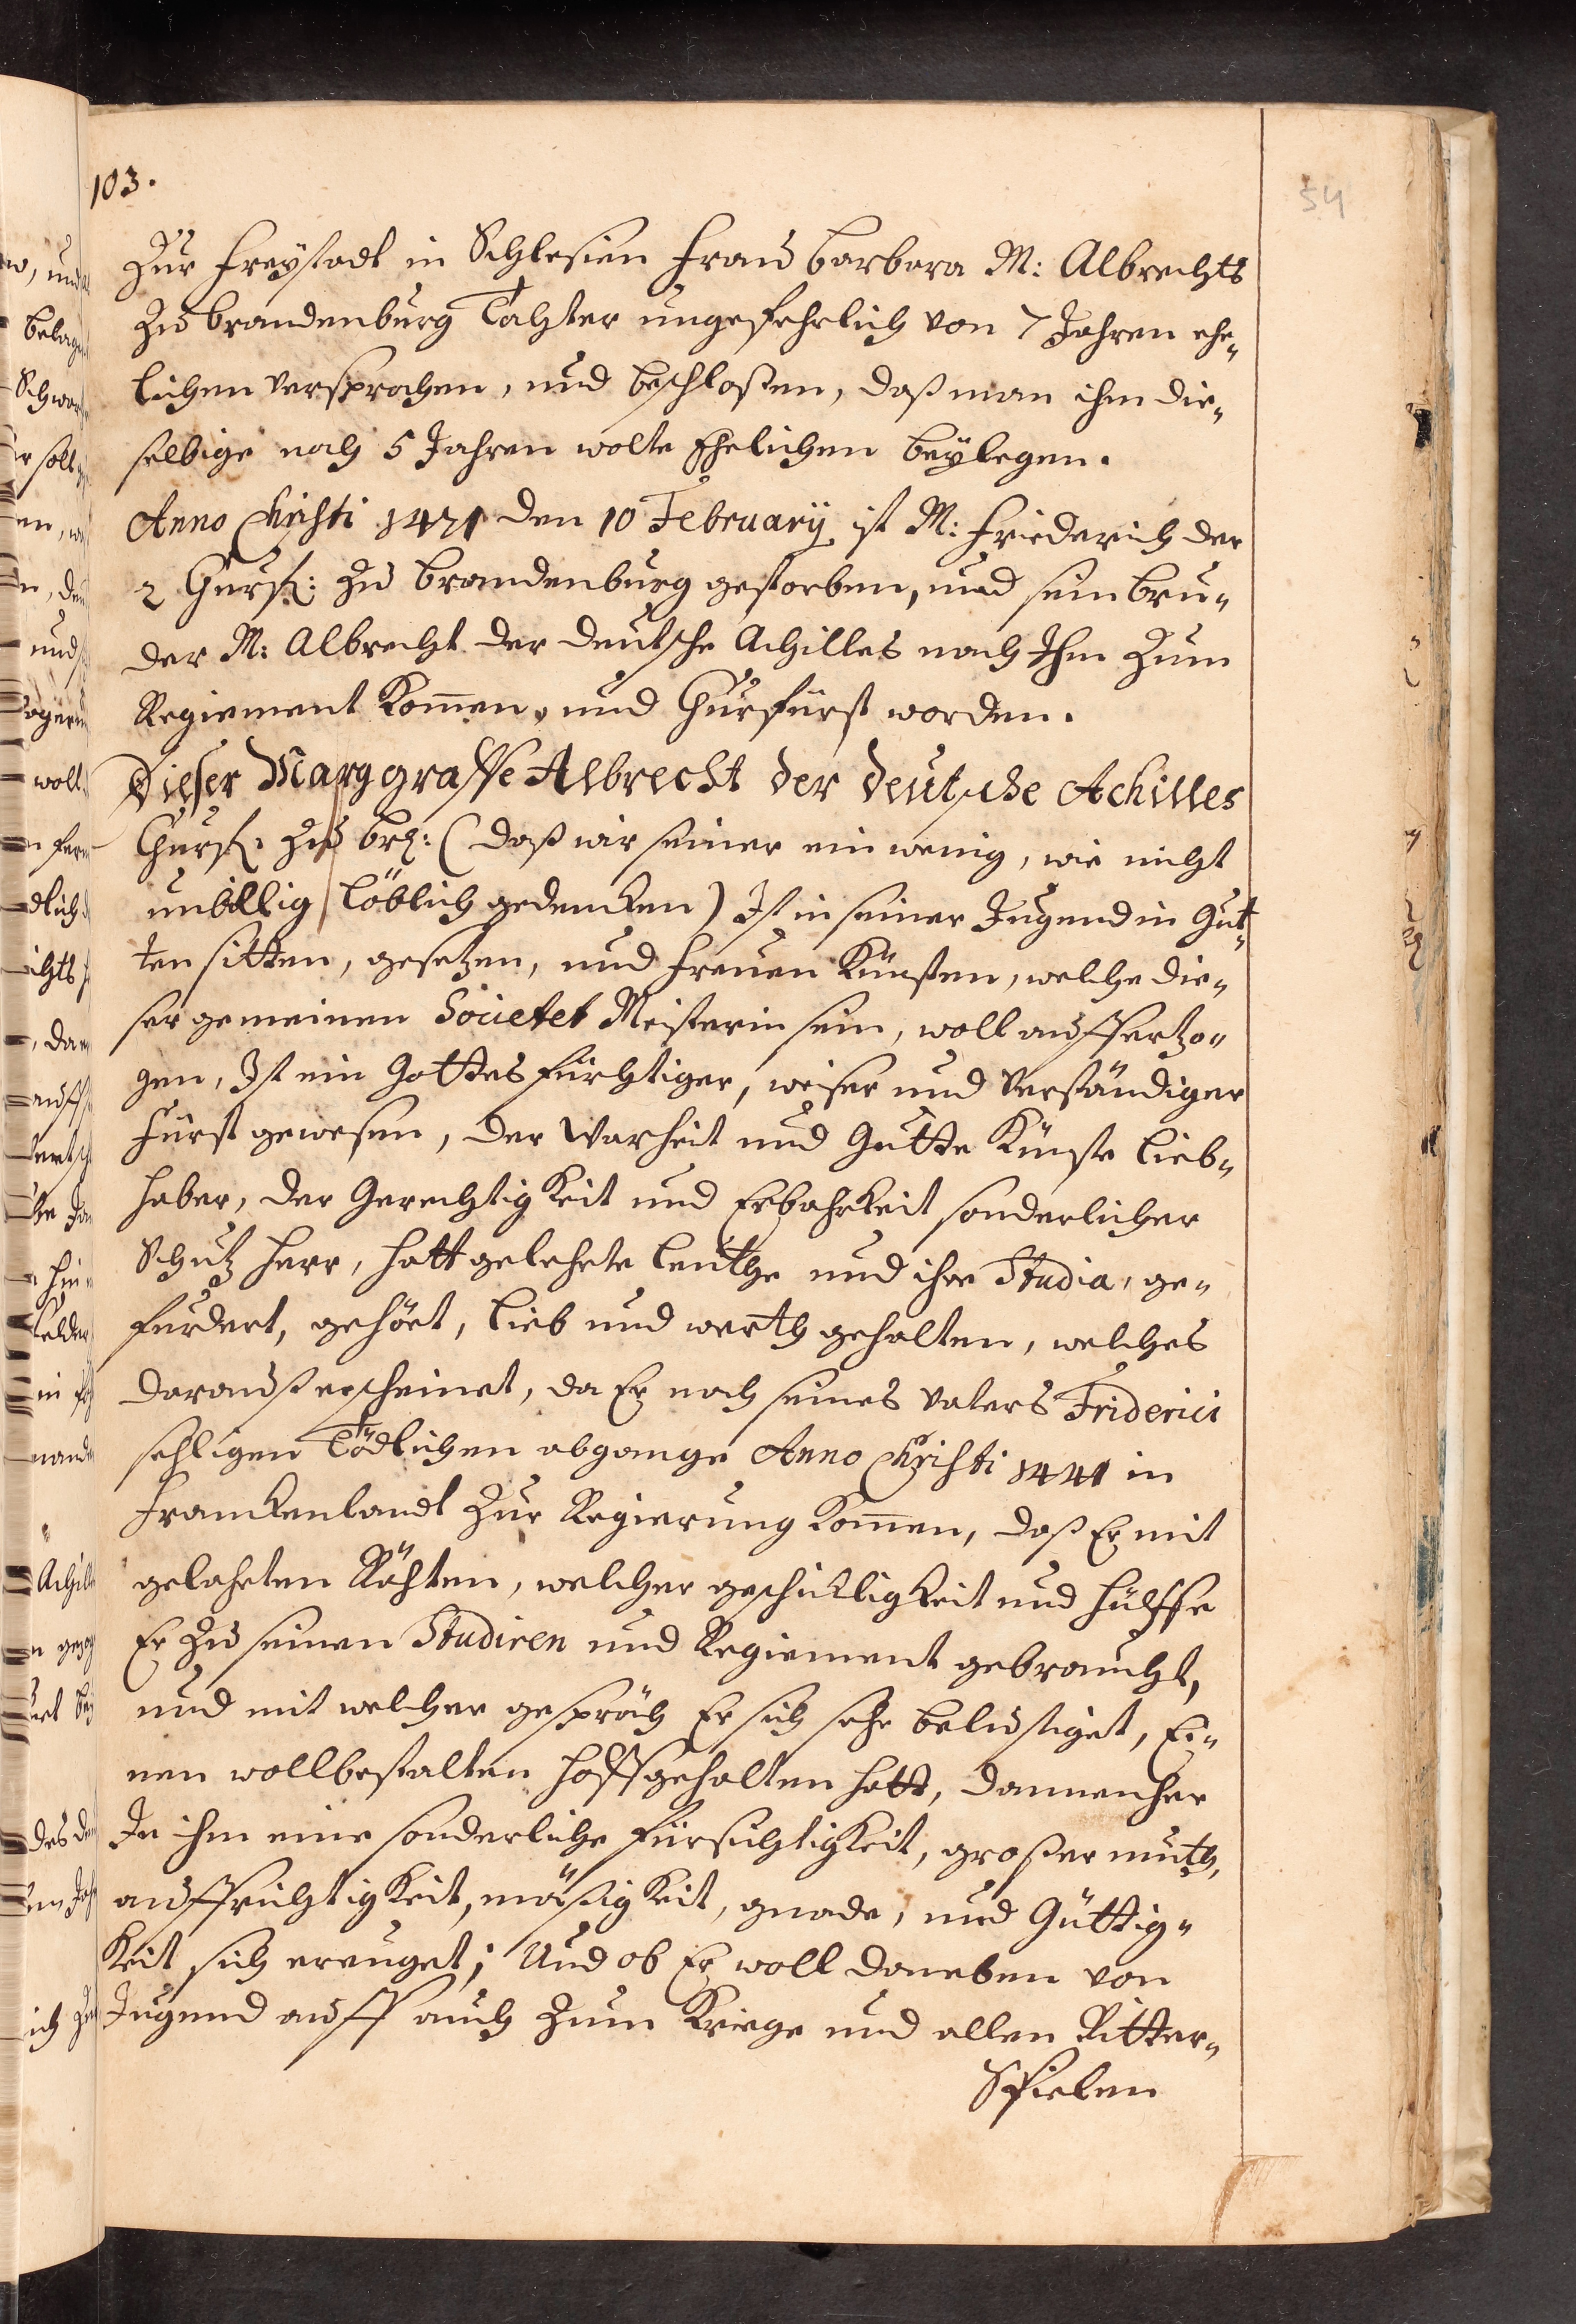 103.
54
Zur Freystadt in Schlesien Frau Barbara M: Albrechts
zu Brandenburg Tochter ungefehrlich von 7 Jahren ehe„
lichen versprochen, und beschloßen, daß man ihm die„
selbige nach 5 Jahren wolte Ehelichen beylegen.
Anno Christi 1471 den 10 February ist M: Friederich der
2 Churf: zu Brandenburg gestorben, und sein Bru„
der M: Albrecht der deutsche Achilles nach Ihm Zum
Regiement kommen, und Churfürst worden.
Dieser Marggraffe Albrecht der deutsche Achilles
Churf: zu Br: (daß wir seiner ein wenig, wie nicht
unbillig löblich gedencken) Ist in seiner Jugend in Gut„
ten sitten, gesetzen, und freyen Künsten, welche die„
ser gemeinen Societet Meisterin sein, woll aufferzo„
gen, Ist ein Gottesfürchtiger, weiser und verständiger
Fürst gewesen, der Warheit und Gutte Künste Lieb„
haber, der Gerechtigkeit und Erbahrkeit sonderlicher
Schutz Herr, hatt gelehrte leuthe und ihre Studia, ge„
furdert, gehört, lieb und werth gehalten, welches
darauß erscheinet, da Er nach seines Vaters Friderici
sehligen Tödlichen abgange Anno Christi 1441 in
Franckenlandt Zur Regierung kommen, daß Er mit
gelahrten Rähten, welcher geschickligkeit und hülffe
Er zu seinen Studiren und Regiement gebraucht,
und mit welcher gespräch Er sich sehr belustiget, Ei„
nen wollbestalten Hoff gehalten hatt, dannenher
In ihm eine sonderliche Fürsichtigkeit, großer muth,
auffrichtigkeit, mäßigkeit, gnade, und Güttig„
keit sich ereuget; Und ob Er woll daneben von
Jugend auff auch zum Kriege und allen Ritter„
Spielen